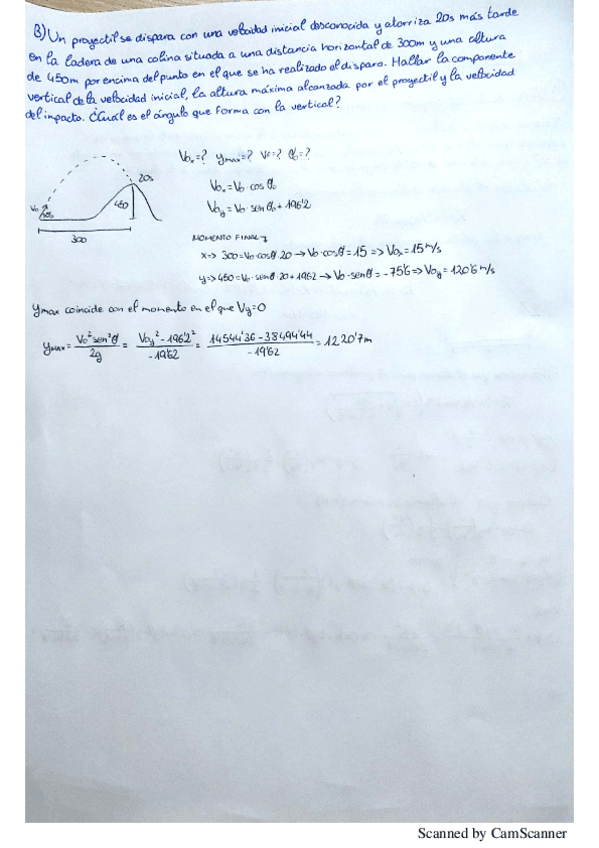 B) Un proyectil se dispara con una velocidad inicial desconocida y aterriza 20s más tarde
en la ladera de una colina situada a una distancia horizontal de 300m y una altura
de 450m por encima del punto en el que se ha realizado el disparo. Hallar la componente
vertical de la velocidad inicial, la altura máxima alcanzada por el proyectil y la velocidad
del impacto. ¿Cuál es el ángulo que forma con la vertical?
V₀ₓ=? yₘₐₓ=? VF=? θ₀=?
20s
V₀ₓ=V₀·cos θ₀
450
V₀
V₀y=V₀·sen θ₀+196'2
300
MOMENTO FINAL
x=> 300=V₀·cosθ·20 → V₀·cosθ=15 => V₀ₓ=15m/s
y=> 450=V₀·senθ·20+1962 → V₀·senθ=-75'6 => V₀y=120'6 m/s
yₘₐₓ coincide con el momento en el que Vy=0
yₘₐₓ= V₀²sen²θ/2g = V₀y²-196'2²/-19'62 = 14544'36-38494'44/-19'62 = 1220'7m
Scanned by CamScanner